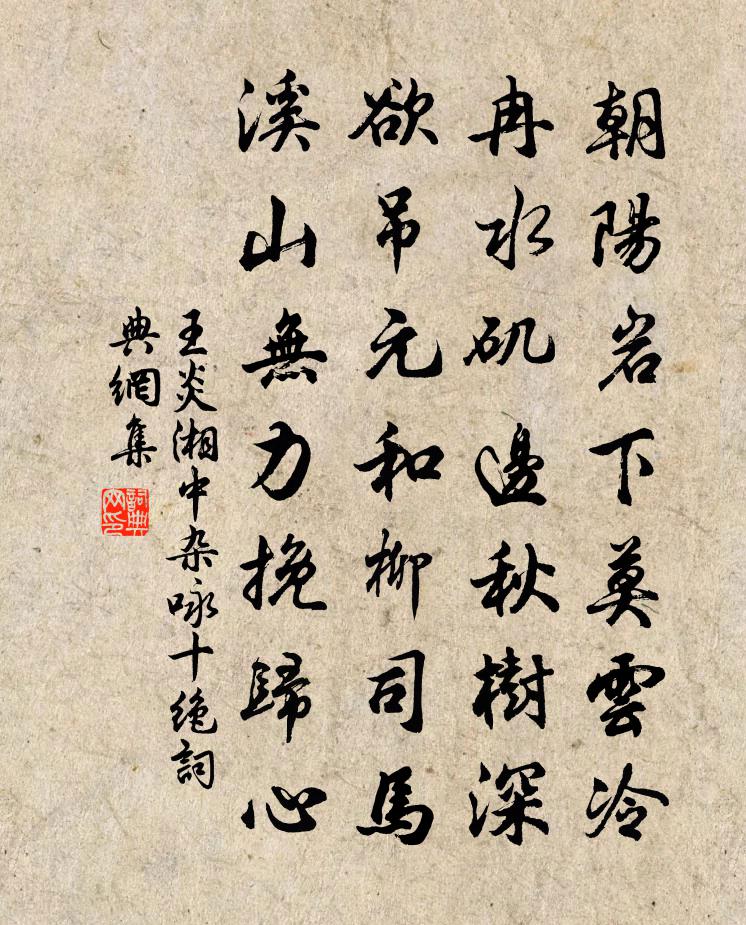 朝陽岩下莫雲冷
冉水矶邊秋樹深
欲吊元和柳司馬
溪山無力挽歸心
王炎湘中杂咏十绝詞
典網集
詞典网印